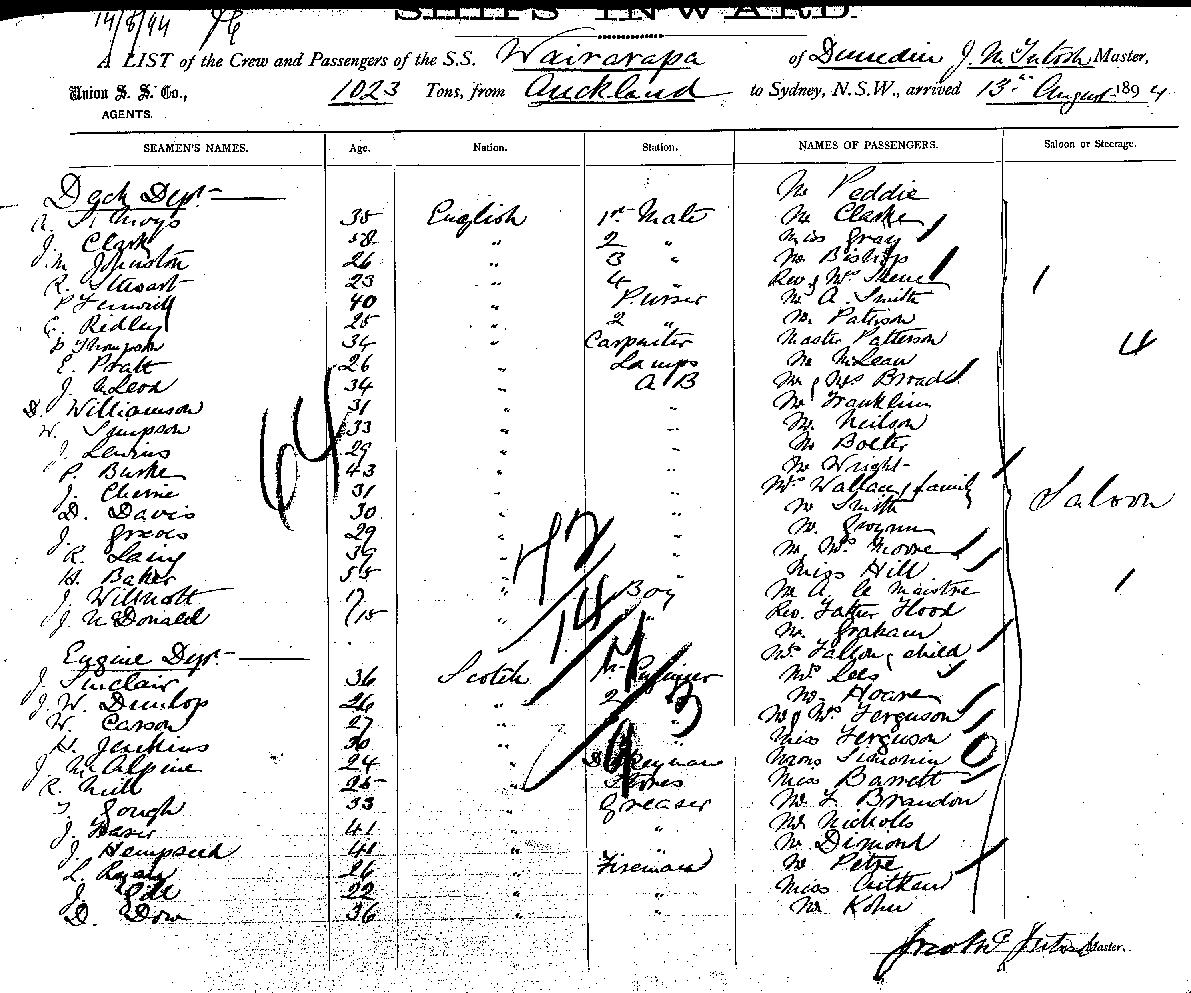 14/8/94
SHIPS INWARD.
A LIST of the Crew and Passengers of the S.S. Wairarapa of Dunedin J. McIntosh Master,
Union S. S. Co., AGENTS. 1023 Tons, from Auckland to Sydney, N.S.W., arrived 13th August 1894
SEAMEN'S NAMES. Age. Nation. Station. NAMES OF PASSENGERS. Saloon or Steerage.
Deck Dept- Mr Peddie
35 English 1st Mate Mr Clarke
J. Clark 58 " 2 " Miss Gray
J. M. Johnston 26 " 3 " Mr Bishop
R. Stewart 23 " 4 " Rev & Mrs 1
P Fenwick 40 " Purser Mr A. Smith
C. Ridley 25 " 2 " Mr Pattison
P Thompson 34 " Carpenter Master Patterson 4
E. Pratt 26 " Lamps Mr McLean
J. McLeod 34 " A B Mr & Mrs Broad
D. Williamson 31 " " Mr Franklin
W. Simpson 33 " " Mr Neilson
J. 29 " " Mr Bolter
P. Burke 43 " " Mr Wright
J. Cherrie 31 " " Mrs Wallace & family Saloon
D. Davis 30 " " Mr Smith
J. 29 " " Mr Gwynn
R. Laing 39 " " Mr Mrs Moore
H. Baker 55 " " Miss Hill 1
J. Willmott 17 " Boy M A. Le Maistre
J. McDonald 15 " " Rev. Father Flood
Mr Graham
Engine Dept. Mrs Fallon & child
J. Sinclair 36 Scotch 1st Engineer Mrs Lees
J. W. Dunlop 26 " 2 " Mr Hoare
W. Carson 27 " 3 " Mr & Mrs Ferguson
H. Jenkins 30 " " Miss Ferguson
J. McAlpine 24 " Donkeyman Mons Simonin
R. Neill 25 " Stores Miss Barrett
T. Gough 33 " Greaser Mr F. Brandon
J. Fraser 41 " " Mr Nicholls
J. Hempseed 41 " " Mr Dimond
L. 26 " Fireman Mr Petre
J. Gill 22 " " Miss Aitken
D. Dow 36 " " Mr Kohn
64
42
14
7
63
9
Master.